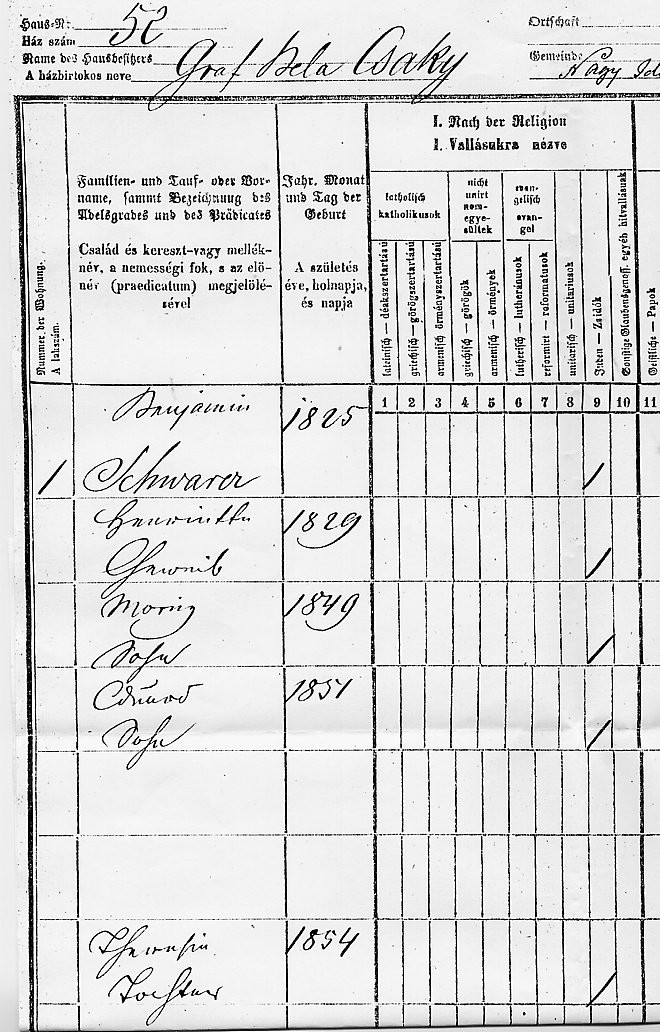 Haus-Nr. 52
Ház szám
Name des Hausbesitzers
A házbirtokos neve Graf Bela Csaky
Ortschaft
Gemeinde Nagy Ida
I. Nach der Religion
I. Vallásukra nézve
Nummer der Wohnung.
A lakszám.
Familien- und Tauf- oder Vor-
name, sammt Bezeichnung des
Adelsgrades und des Prädicates
Család és kereszt-vagy mellék-
név, a nemességi fok, s az elő-
név (praedicatum) megjelölé-
sével
Jahr, Monat
und Tag der
Geburt
A születés
éve, holnapja,
és napja
katholisch
katholikusok
nicht
unirt
nem-
egye-
sültek
evan-
gelisch
evan-
gel
lateinisch — déakszertartású
griechisch — görögszertartású
armenisch örményszertartású
griechisch — görögök
armenisch — örmények
lutherisch — lutheránusok
reformirt — reformatusok
unitarisch — unitariusok
Juden — Zsidók
Sonstige Glaubensgenoss. egyéb hitvallásuak
Geistliche — Papok
1 2 3 4 5 6 7 8 9 10 11
Benjamin 1825
1 Schwarcz 1
Henriette 1829
Eheweib 1
Moritz 1849
Sohn 1
Eduard 1851
Sohn 1
Theresia 1854
Tochter 1